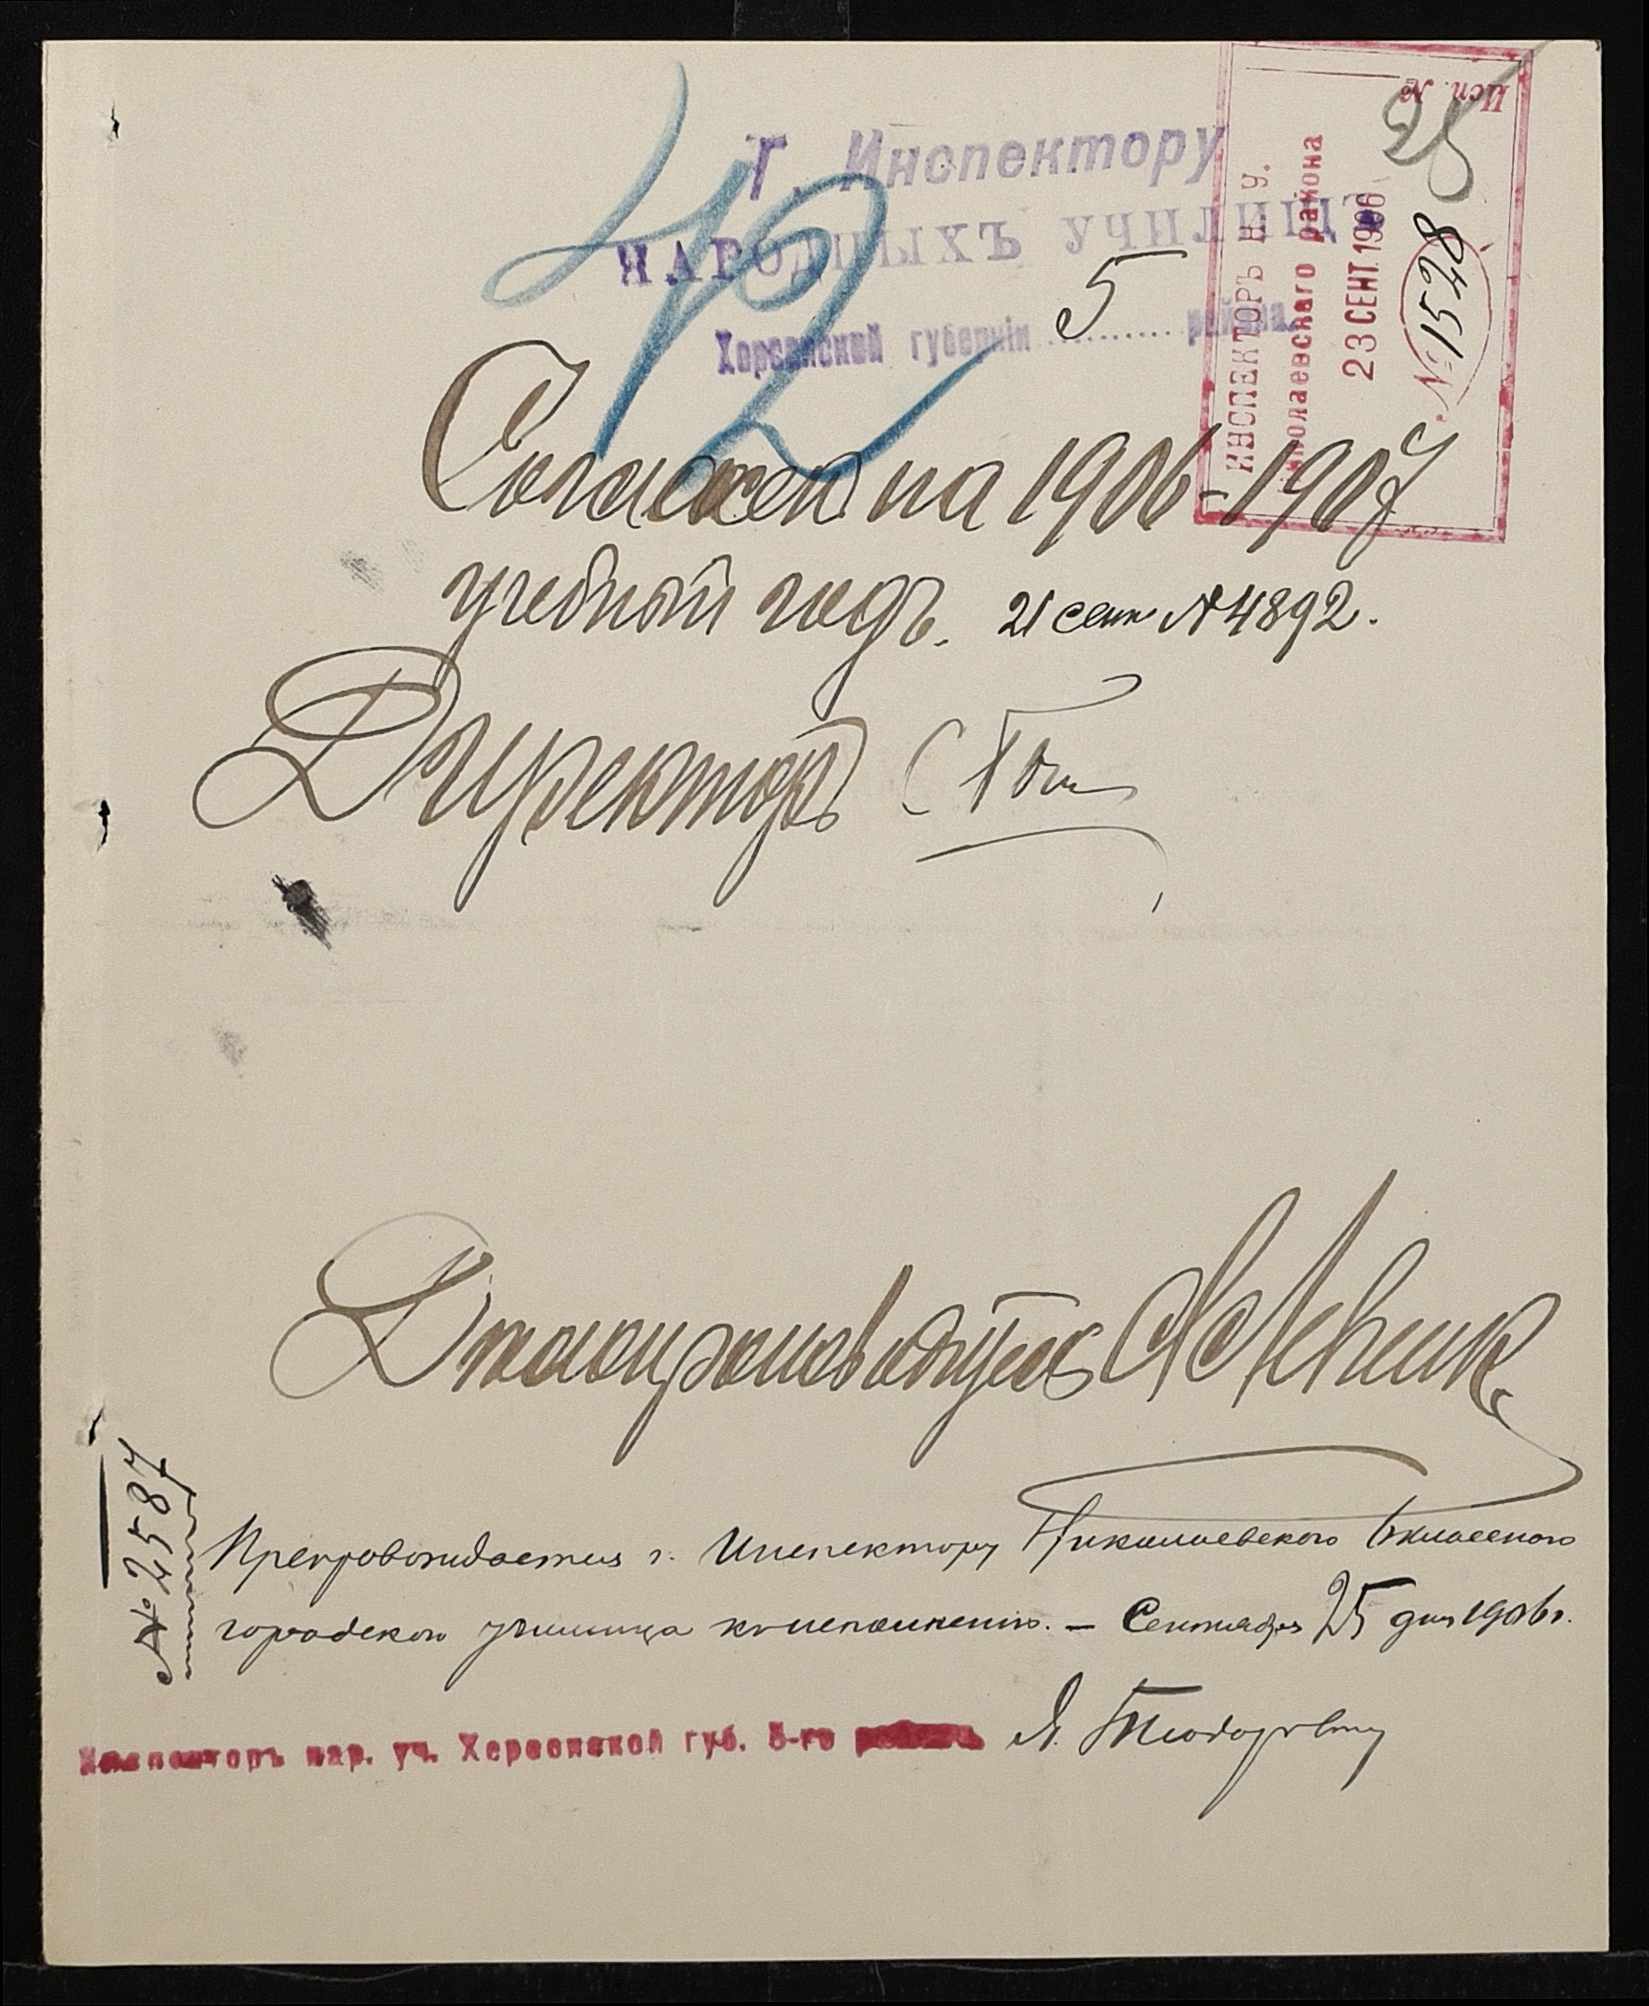 42
Г. Инспектору
НАРОДНЫХЪ УЧИЛИЩЪ
Херсонской губерніи 5 района.
ИНСПЕКТОРЪ Н. У.
Николаевскаго района
23 СЕНТ. 1906
№ 1528
Исп. №
Согласенъ на 1906-1907
учебный годъ. 21 сент № 4892.
Директоръ
Дѣлопроизводитель
№ 2587
Препровождается г. Инспектору Николаевскаго 6 класснаго
городского училища къ исполненію. – Сентября 25 дня 1906 г.
Инспекторъ нар. уч. Херсонской губ. 5-го района